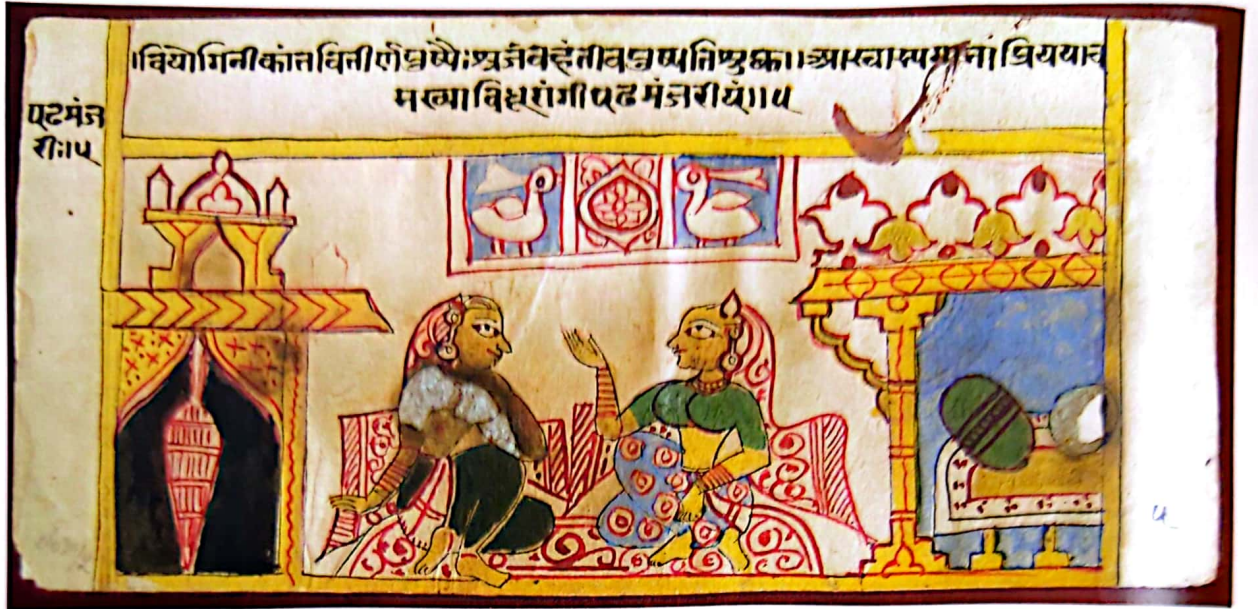 ।वियोगिनीकांतवितीर्णपुष्पैःश्रजंवहंतीवपुषातिशुष्का।।आस्वास्यमानाप्रिययाच
सख्याविधूसरांगीपटमंजरीयं।।५
पटमंज
रीः।।५
५